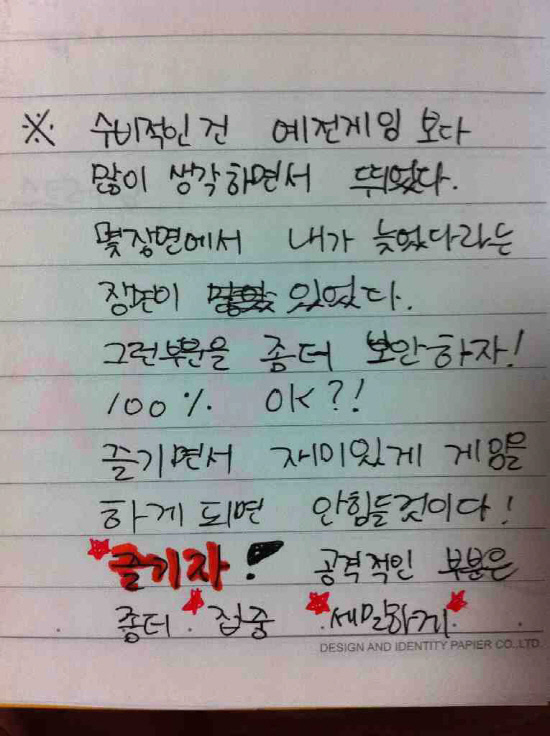 ※ 수비적인 건 예전게임 보다
많이 생각하면서 뛰었다.
몇장면에서 내가 늦었다라는
장면이 있었다.
그런부분을 좀더 보안하자!
100% OK?!
즐기면서 재미있게 게임을
하게 되면 안힘들것이다!
즐기자! 공격적인 부분은
좀더 집중 세밀하게.
DESIGN AND IDENTITY PAPIER CO.,LTD.